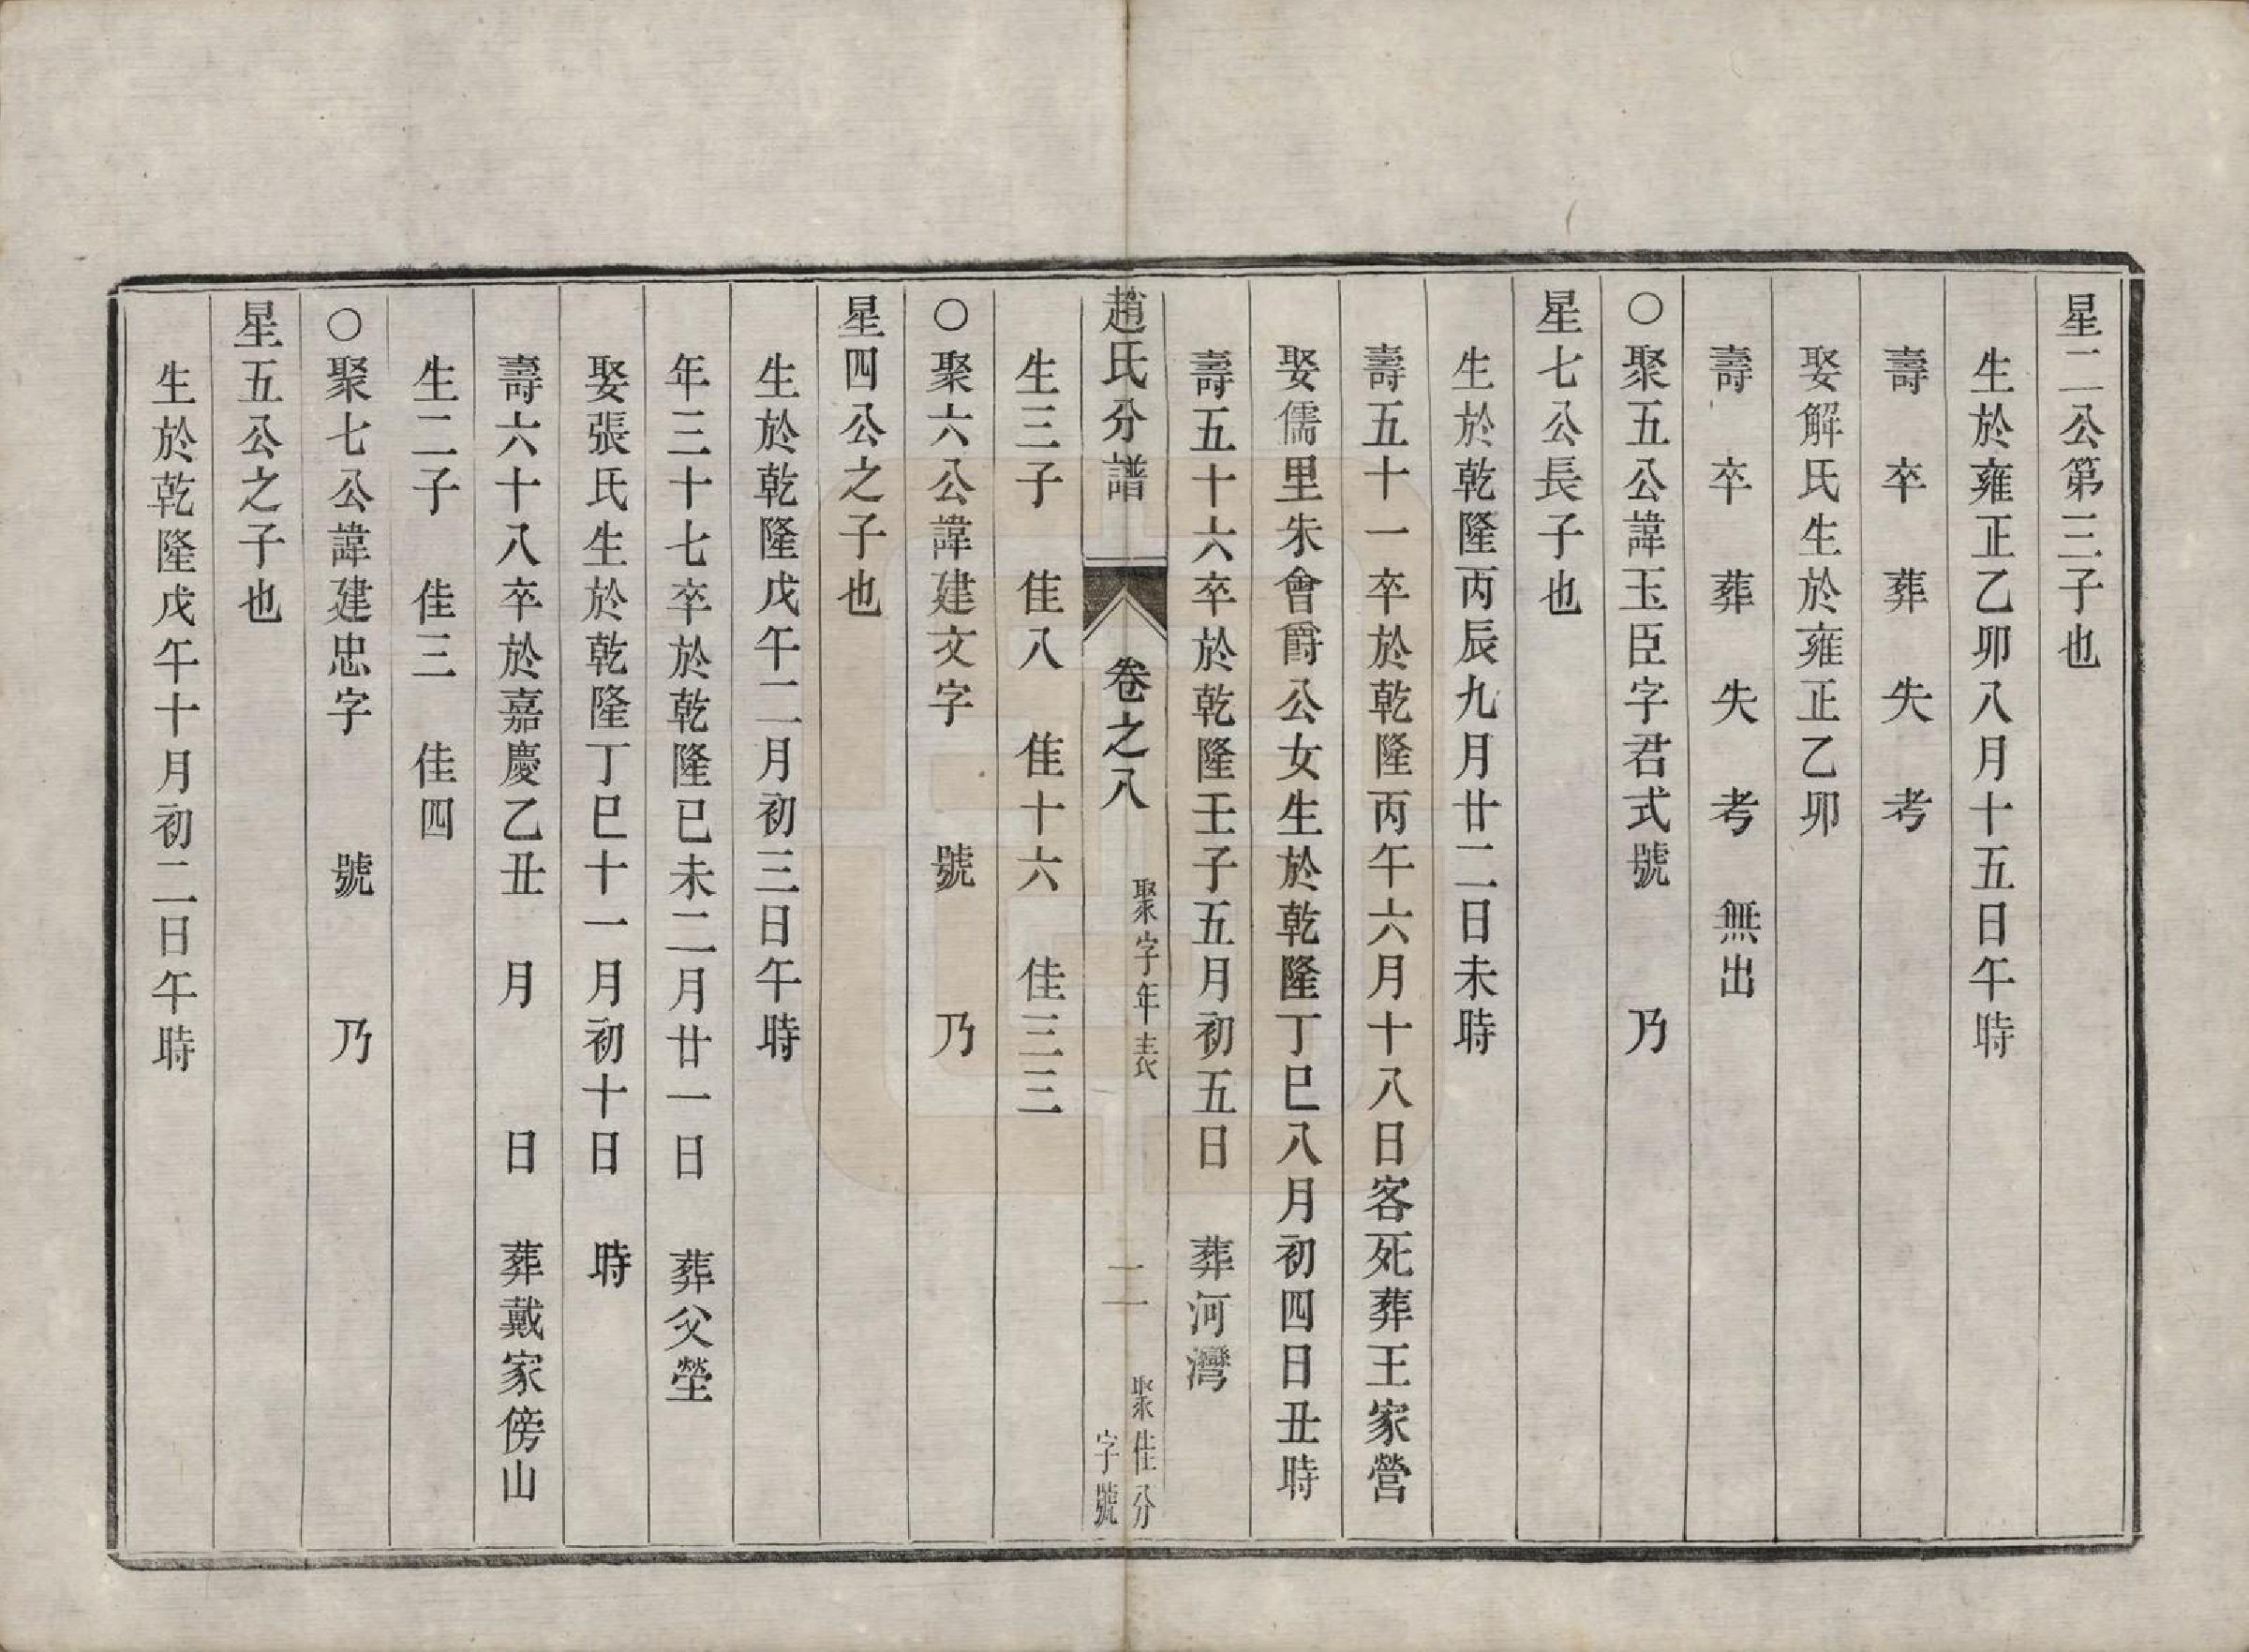 星二公第三子也
生於雍正乙卯八月十五日午時
壽 卒 葬 失 考
娶解氏生於雍正乙卯
壽 卒 葬 失 考 無出
○聚五公諱玉臣字君式號 乃
星七公長子也
生於乾隆丙辰九月廿二日未時
壽五十一卒於乾隆丙午六月十八日客死葬王家營
娶儒里朱會爵公女生於乾隆丁巳八月初四日丑時
壽五十六卒於乾隆壬子五月初五日 葬河灣
趙氏分譜 卷之八 聚字年表 二 聚佳分字號
生三子 佳八 佳十六 佳三三
○聚六公諱建文字 號 乃
星四公之子也
生於乾隆戊午二月初三日午時
年三十七卒於乾隆已未二月廿一日 葬父塋
娶張氏生於乾隆丁巳十一月初十日 時
壽六十八卒於嘉慶乙丑 月 日 葬戴家傍山
生二子 佳三 佳四
○聚七公諱建忠字 號 乃
星五公之子也
生於乾隆戊午十月初二日午時